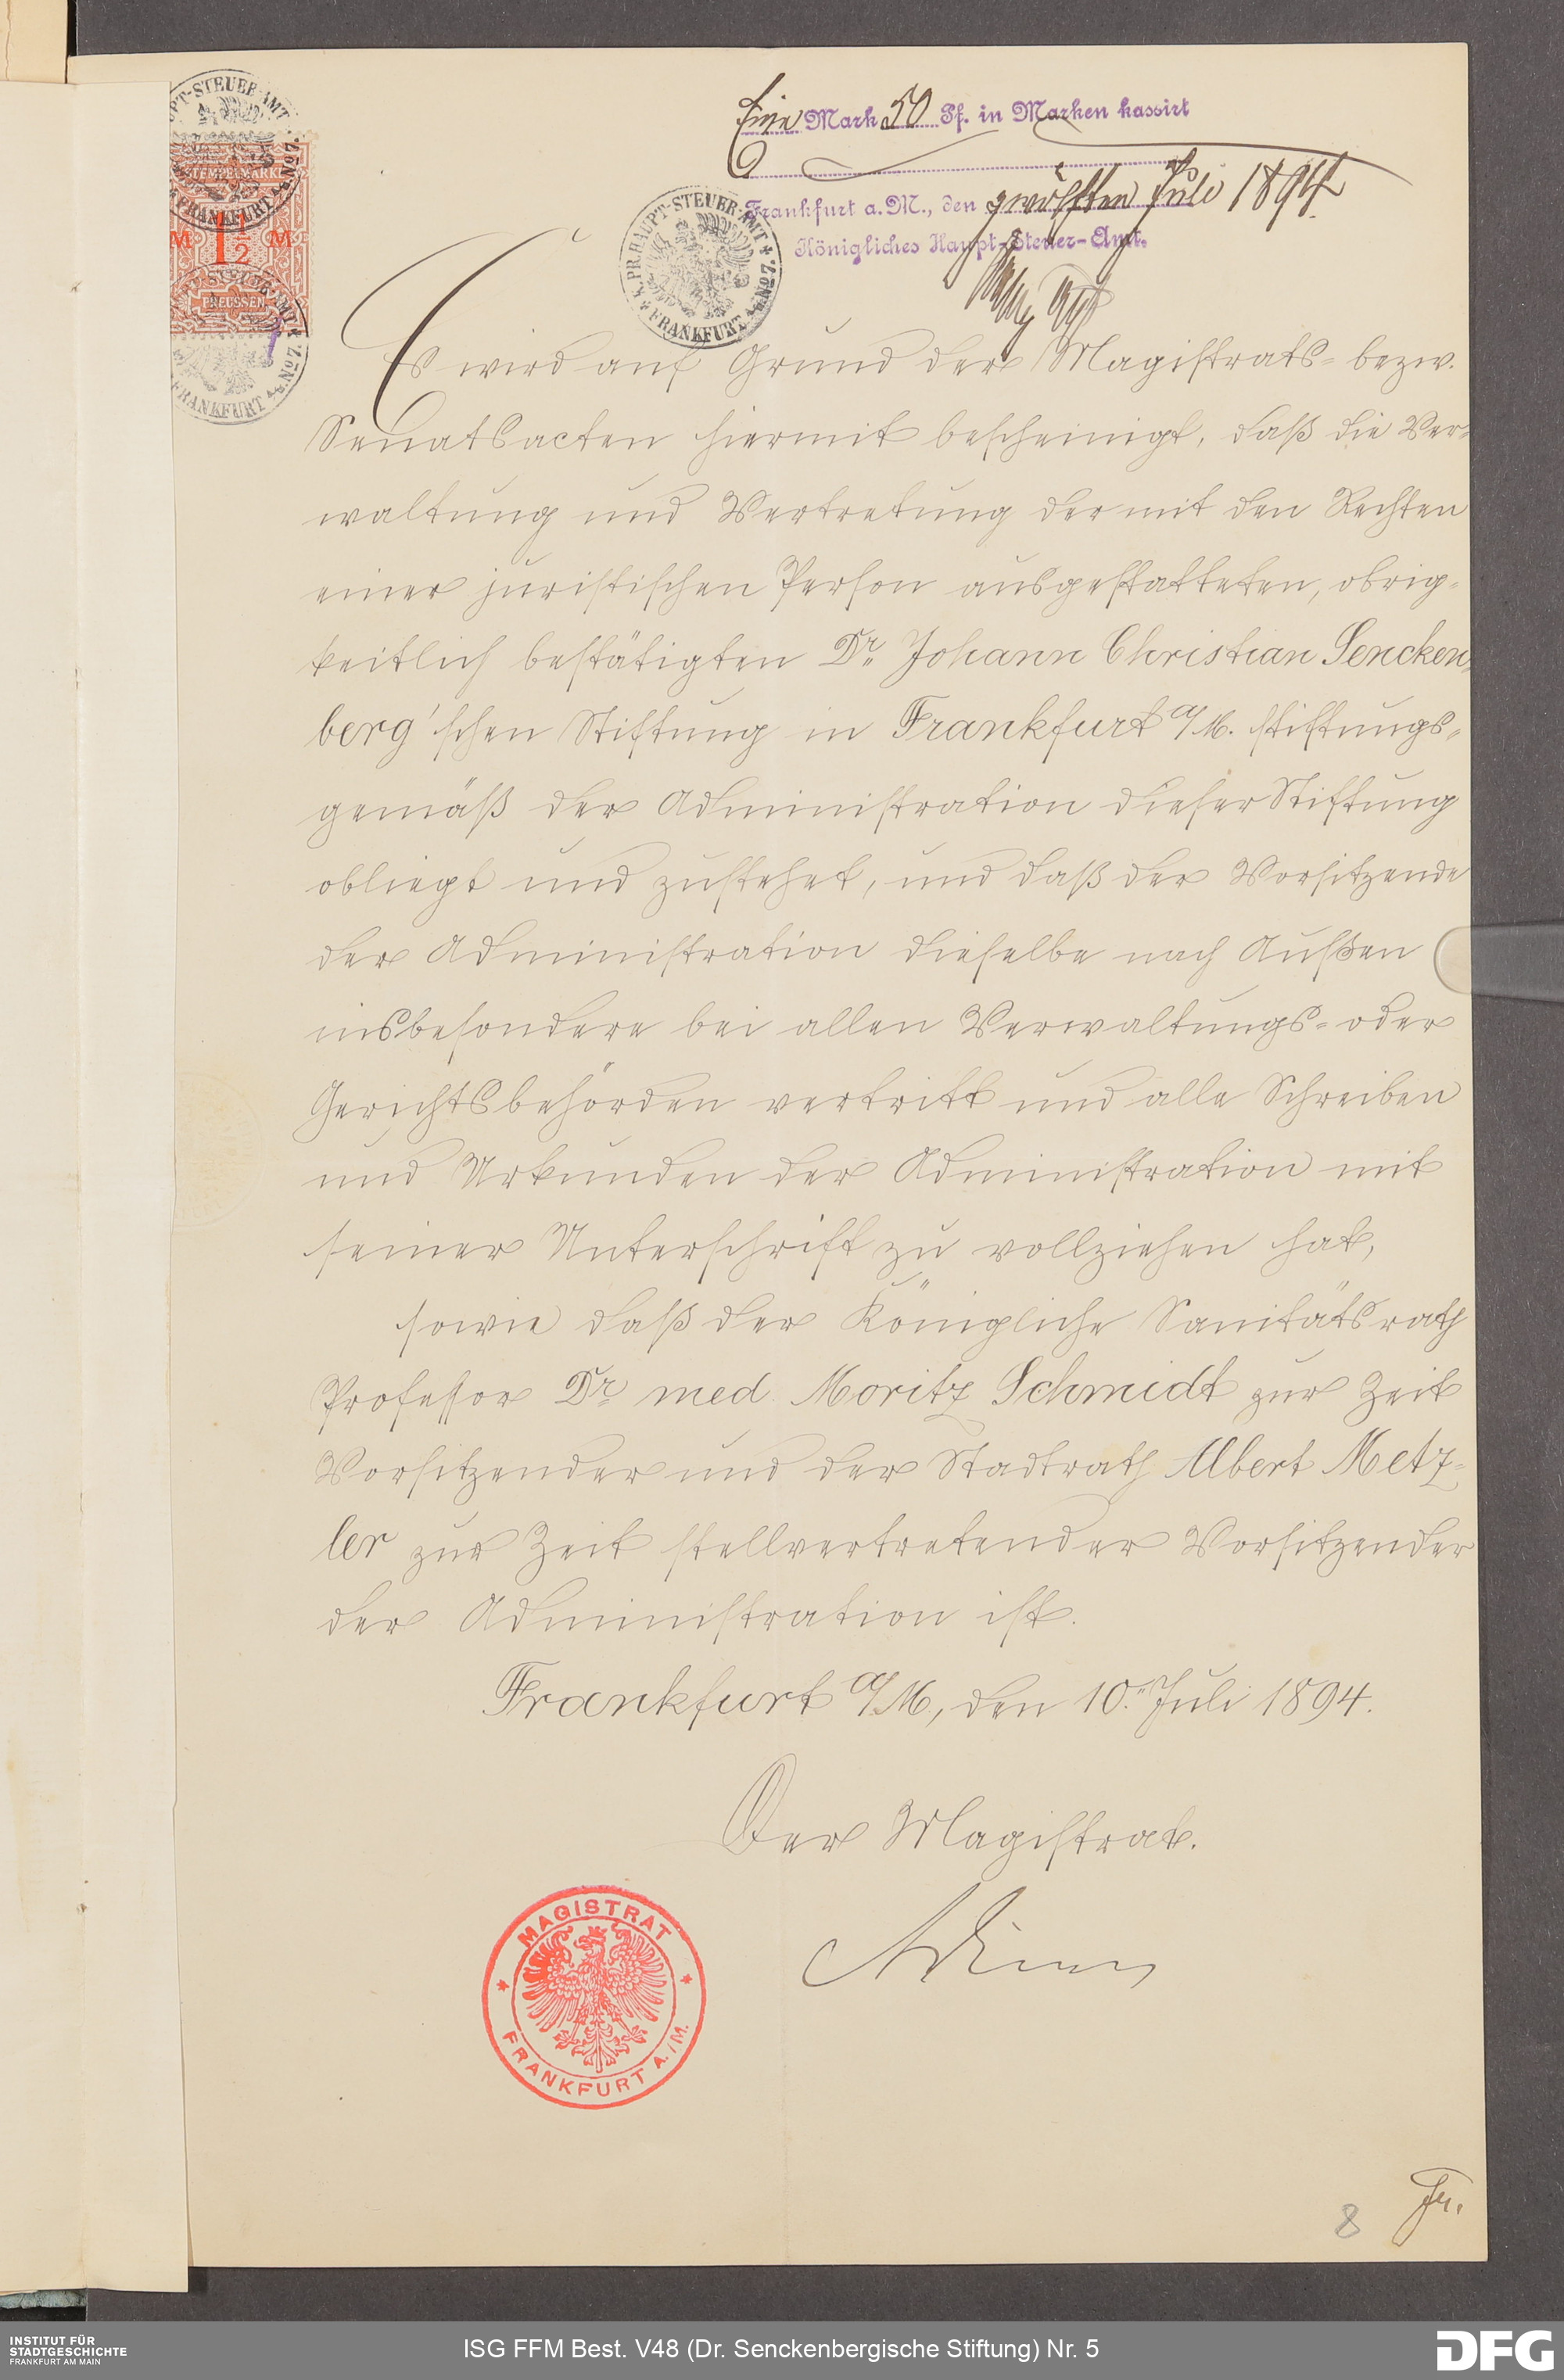 Eine Mark 50 Pf. in Marken kassirt
Frankfurt a. M., den zwölften Juli 1894
Königliches Haupt-Steuer-Amt.
K. PR. HAUPT-STEUER-AMT No 7.
FRANKFURT
STEMPELMARKE
M 1½ M
PREUSSEN
Es wird auf Grund der Magistrats- bezw.
Senatsacten hiermit bescheinigt, daß die Ver-
waltung und Vertretung der mit den Rechten
einer juristischen Person ausgestatteten, obrig-
keitlich bestätigten Dr. Johann Christian Sencken-
berg'schen Stiftung in Frankfurt a/M. stiftungs-
gemäß der Administration dieser Stiftung
obliegt und zustehet, und daß der Vorsitzende
der Administration dieselbe nach Außen
insbesondere bei allen Verwaltungs- oder
Gerichtsbehörden vertritt und alle Schreiben
und Urkunden der Administration mit
seiner Unterschrift zu vollziehen hat,
sowie daß der Königliche Sanitätsrath
Professor Dr. med. Moritz Schmidt zur Zeit
Vorsitzender und der Stadtrath Albert Metz-
ler zur Zeit stellvertretender Vorsitzender
der Administration ist.
Frankfurt a/M, den 10. Juli 1894.
Der Magistrat.
Adickes
MAGISTRAT
FRANKFURT A./M.
8
INSTITUT FÜR
STADTGESCHICHTE
FRANKFURT AM MAIN
ISG FFM Best. V48 (Dr. Senckenbergische Stiftung) Nr. 5
DFG